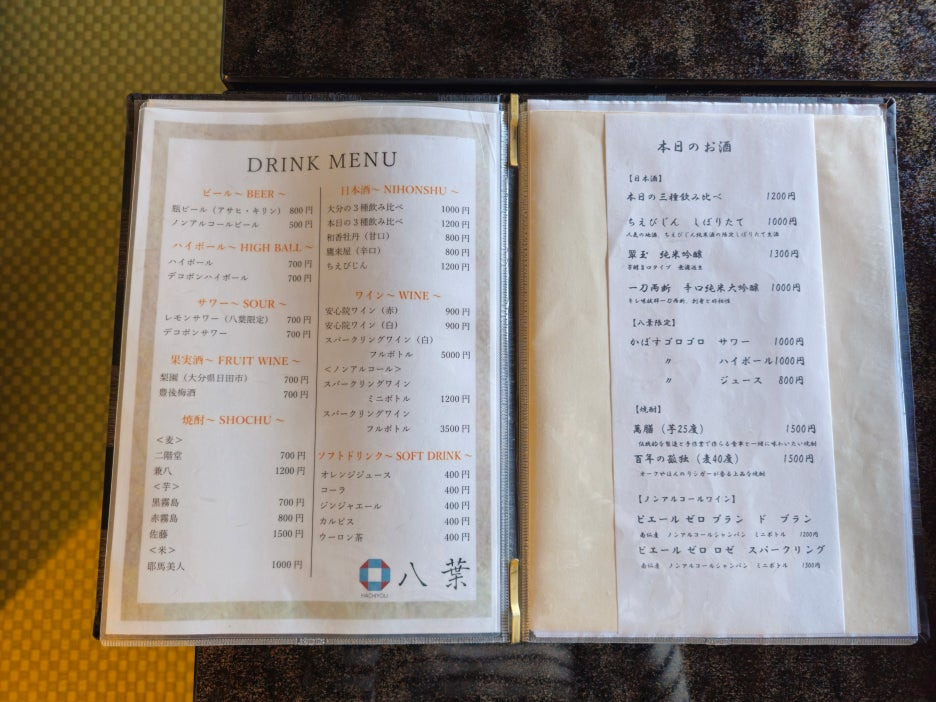 DRINK MENU
ビール～ BEER ～
瓶ビール（アサヒ・キリン） 800円
ノンアルコールビール 500円
ハイボール～ HIGH BALL ～
ハイボール 700円
デコポンハイボール 700円
サワー～ SOUR ～
レモンサワー（八葉限定） 700円
デコポンサワー 700円
果実酒～ FRUIT WINE ～
梨園（大分県日田市） 700円
豊後梅酒 700円
焼酎～ SHOCHU ～
＜麦＞
二階堂 700円
兼八 1200円
＜芋＞
黒霧島 700円
赤霧島 800円
佐藤 1500円
＜米＞
耶馬美人 1000円
日本酒～ NIHONSHU ～
大分の３種飲み比べ 1000円
本日の３種飲み比べ 1200円
和香牡丹（甘口） 800円
鷹来屋（辛口） 800円
ちえびじん 1200円
ワイン～ WINE ～
安心院ワイン（赤） 900円
安心院ワイン（白） 900円
スパークリングワイン（白）
フルボトル 5000円
＜ノンアルコール＞
スパークリングワイン
ミニボトル 1200円
スパークリングワイン
フルボトル 3500円
ソフトドリンク～ SOFT DRINK ～
オレンジジュース 400円
コーラ 400円
ジンジャエール 400円
カルピス 400円
ウーロン茶 400円
HACHIYOU
八葉
本日のお酒
【日本酒】
本日の三種飲み比べ 1200円
ちえびじん しぼりたて 1000円
人気の地酒、ちえびじん純米酒の限定しぼりたて生酒
翠玉 純米吟醸 1300円
芳醇まロタイプ 無濾過生
一刀両断 辛口純米大吟醸 1000円
キレ味抜群一刀両断、刺身と好相性
【八葉限定】
かぼすゴロゴロ サワー 1000円
〃 ハイボール1000円
〃 ジュース 800円
【焼酎】
萬膳（芋25度） 1500円
伝統的な製造と手作業で作らる食事と一緒に味わいたい焼酎
百年の孤独（麦40度） 1500円
オークやほんのリンガーが香る上品な焼酎
【ノンアルコールワイン】
ピエール ゼロ ブラン ド ブラン
南仏産 ノンアルコールシャンパン ミニボトル 1200円
ピエール ゼロ ロゼ スパークリング
南仏産 ノンアルコールシャンパン ミニボトル 1300円